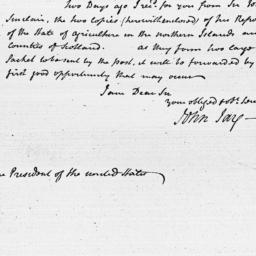 Two Days ago I rec'd for you from Sir Jo
Sinclair, the two copies (herewith enclosed) of his Repo
of the State of agriculture in the northern Islands and
Counties of Scotland. as they form two large
Packet to be sent by the post, it will be forwarded by
first good opportunity that may occur
I am Dear Sir
your obliged & ob.t Serv
John Jay
e President of the United States